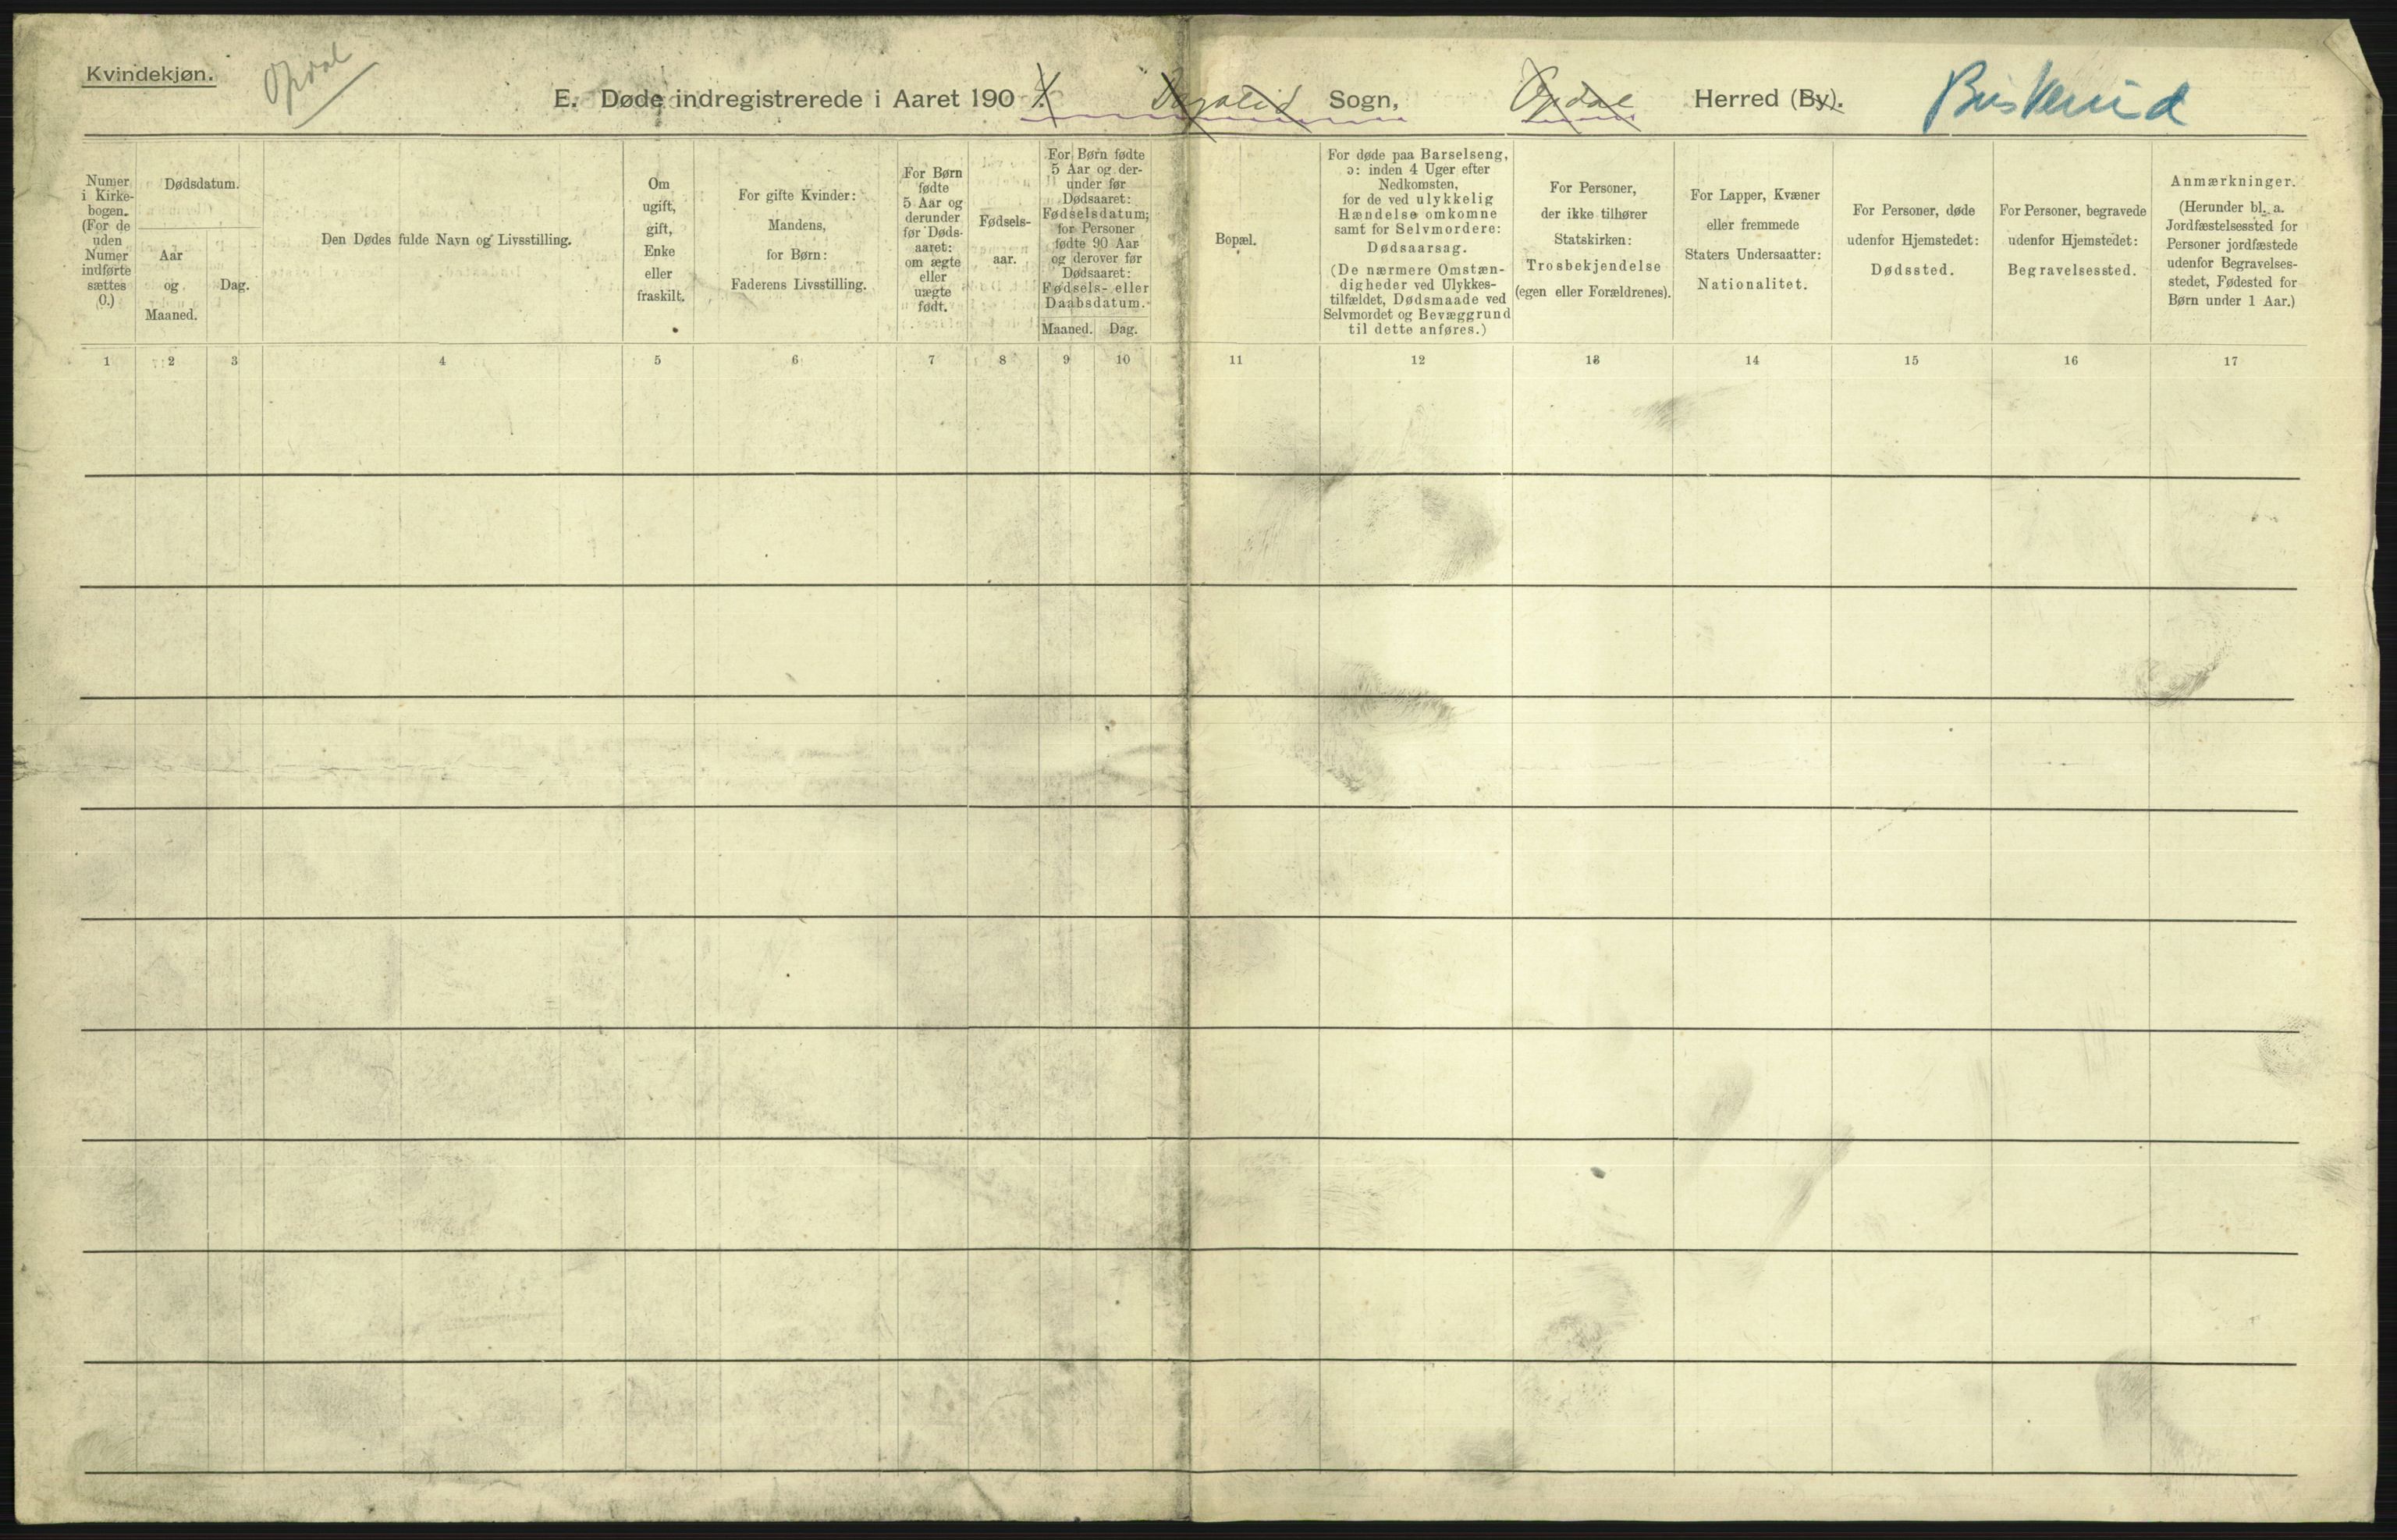 Kvindekjøn.
Opdal
E. Døde indregistrerede i Aaret 190 Dagalid Sogn, Opdal Herred (By). Buskerud
Numer i Kirke-
bogen.
(For de
uden
Numer
indførte
sættes
0.)
Dødsdatum.
Aar
og
Maaned.
Dag.
Den Dødes fulde Navn og Livsstilling.
Om
ugift,
gift,
Enke
eller
fraskilt.
For gifte Kvinder:
Mandens,
for Børn:
Faderens Livsstilling.
For Børn
fødte
5 Aar og
derunder
før Døds-
aaret:
om ægte
eller
uægte
født.
Fødsels-
aar.
For Børn fødte
5 Aar og der-
under før
Dødsaaret:
Fødselsdatum;
for Personer
fødte 90 Aar
og derover før
Dødsaaret:
Fødsels- eller
Daabsdatum.
Maaned. Dag.
Bopæl.
For døde paa Barselseng,
ɔ: inden 4 Uger efter
Nedkomsten,
for de ved ulykkelig
Hændelse omkomne
samt for Selvmordere:
Dødsaarsag.
(De nærmere Omstæn-
digheder ved Ulykkes-
tilfældet, Dødsmaade ved
Selvmordet og Bevæggrund
til dette anføres.)
For Personer,
der ikke tilhører
Statskirken:
Trosbekjendelse
(egen eller Forældrenes).
For Lapper, Kvæner
eller fremmede
Staters Undersaatter:
Nationalitet.
For Personer, døde
udenfor Hjemstedet:
Dødssted.
For Personer, begravede
udenfor Hjemstedet:
Begravelsessted.
Anmærkninger.
(Herunder bl. a.
Jordfæstelsessted for
Personer jordfæstede
udenfor Begravelses-
stedet, Fødested for
Børn under 1 Aar.)
1 2 3 4 5 6 7 8 9 10 11 12 13 14 15 16 17